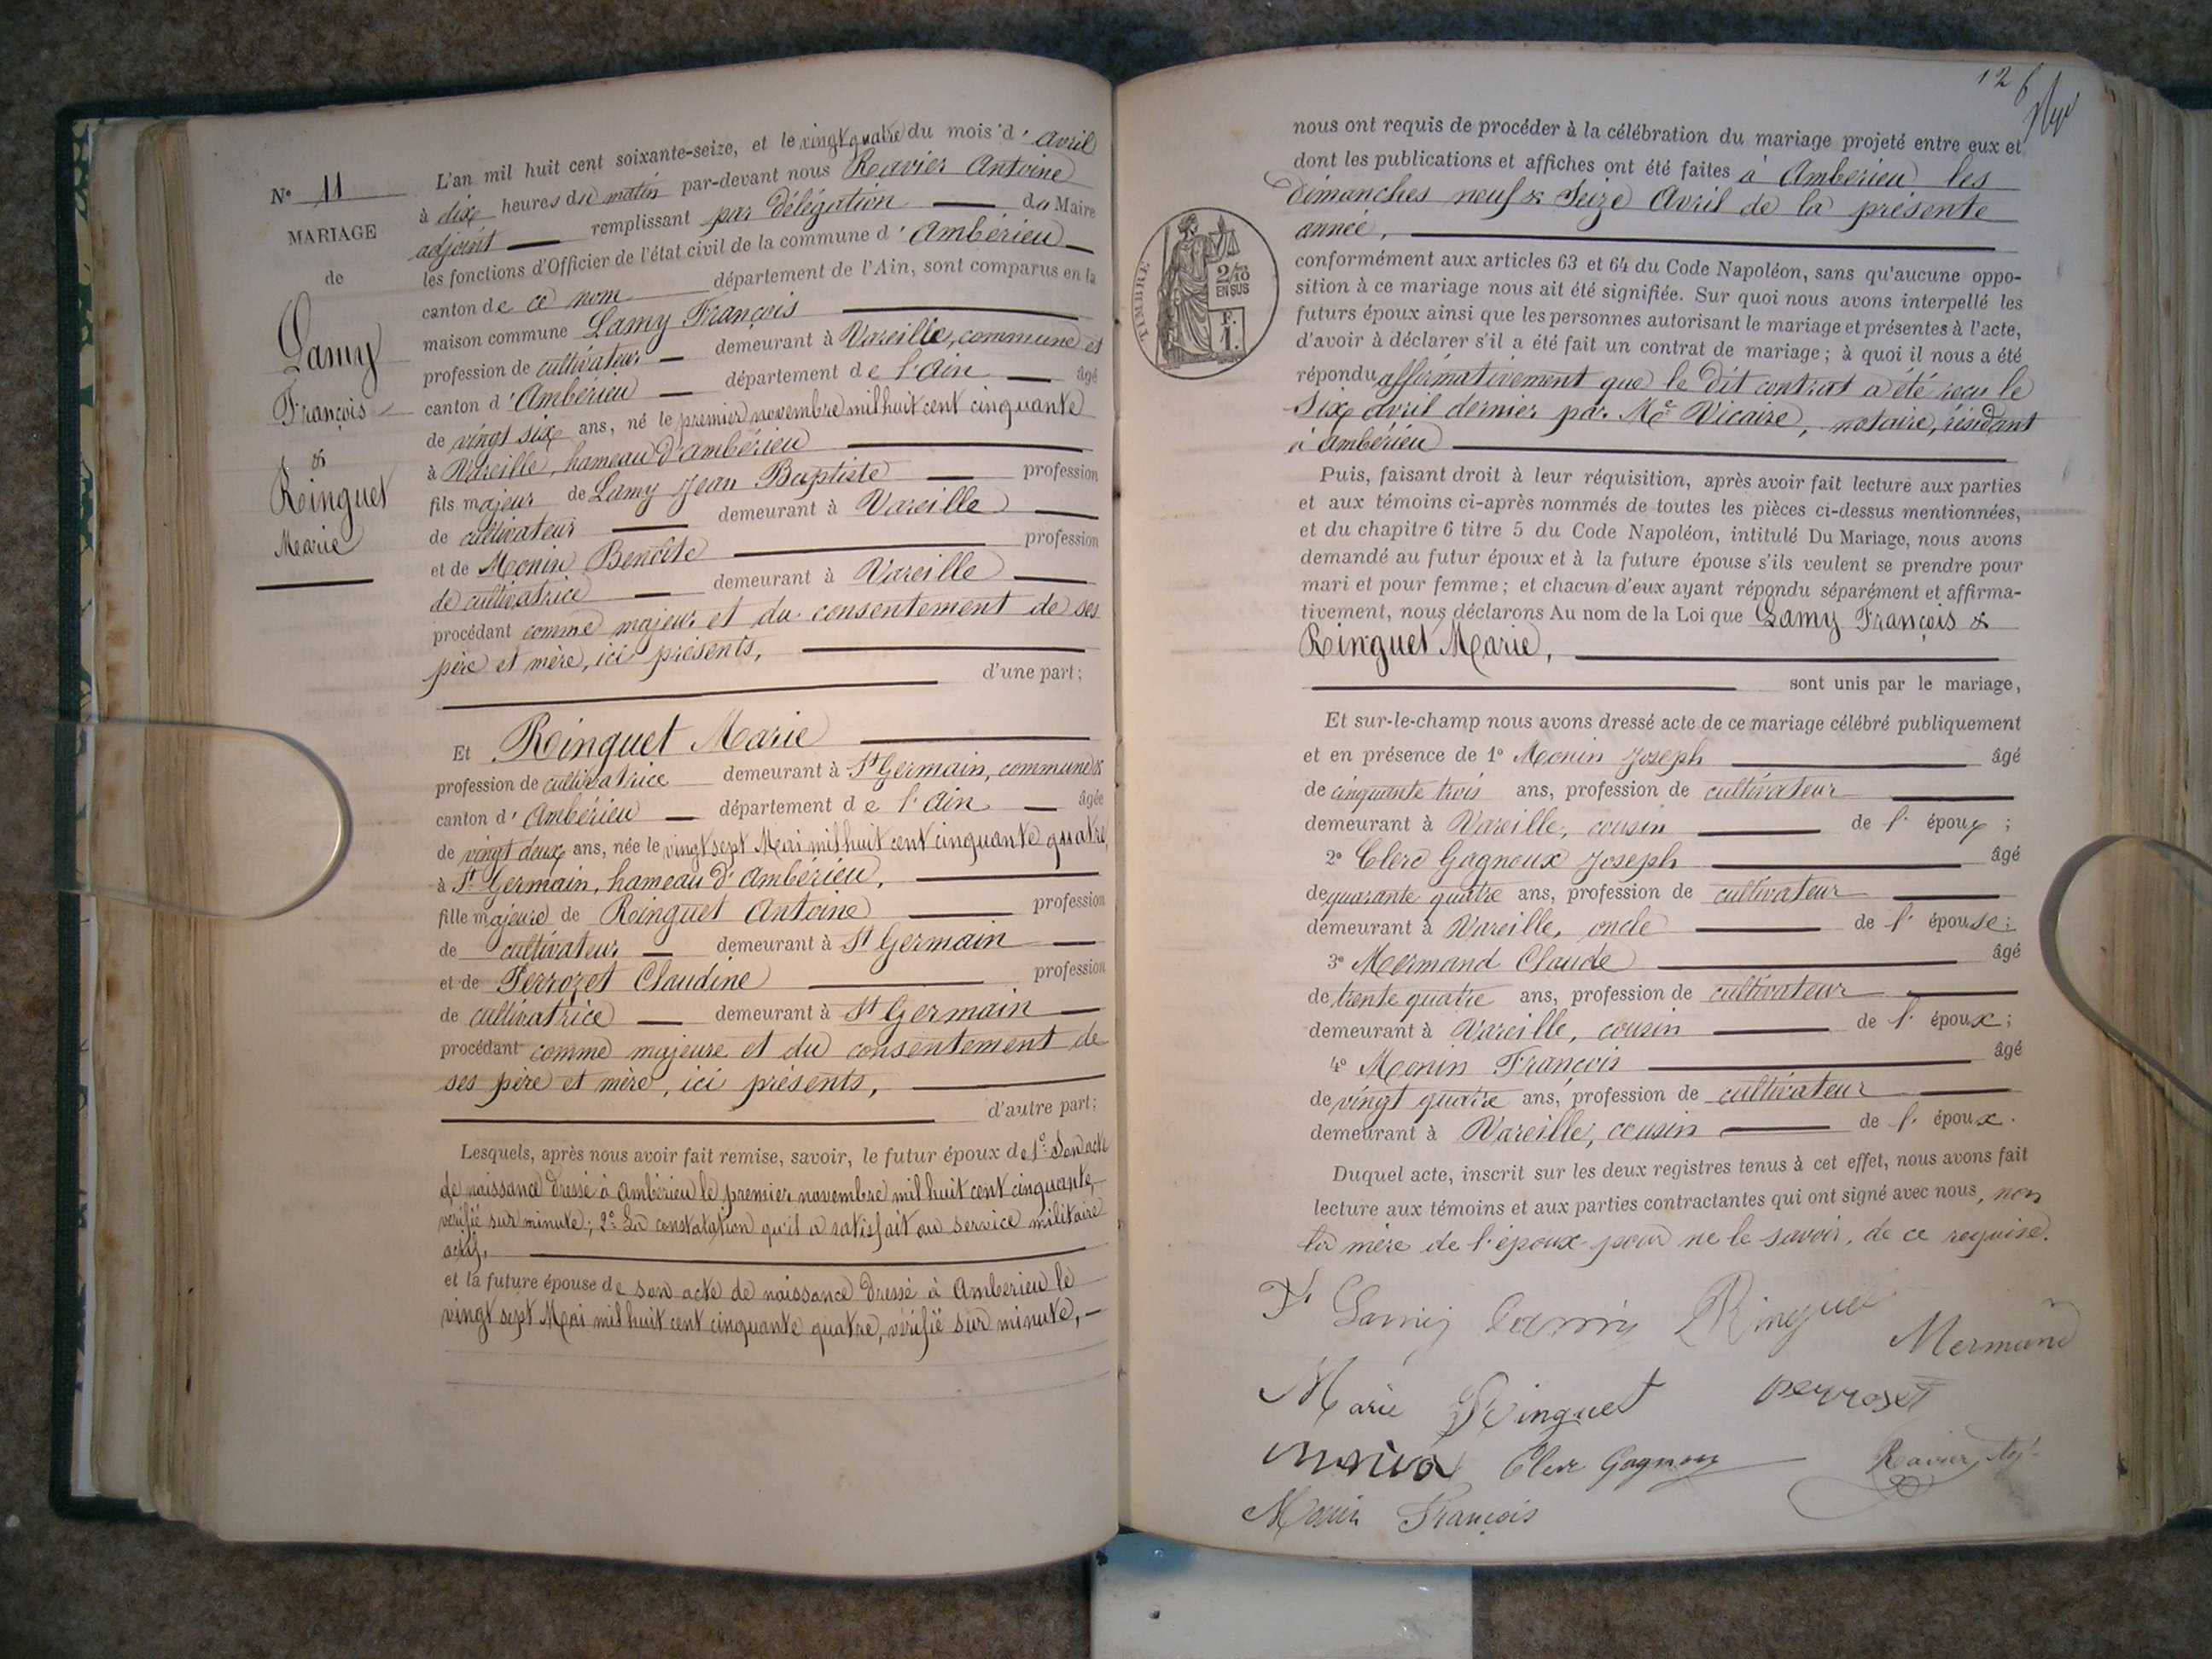 N° 11
MARIAGE
de
Lamy
François
&
Ringuet
Marie
L'an mil huit cent soixante-seize, et le vingt quatre du mois d'Avril
à dix heures du matin par-devant nous Ravier Antoine
adjoint remplissant par délégation du Maire
les fonctions d'Officier de l'état civil de la commune d'Ambérieu
canton de ce nom département de l'Ain, sont comparus en la
maison commune Lamy François
profession de cultivateur demeurant à Vareille, commune et
canton d'Ambérieu département de l'Ain âgé
de vingt six ans, né le premier novembre mil huit cent cinquante
à Vareille, hameau d'ambérieu
fils majeur de Lamy Jean Baptiste profession
de cultivateur demeurant à Vareille
et de Monin Benoîte profession
de cultivatrice demeurant à Vareille
procédant comme majeur et du consentement de ses
père et mère, ici présents,
d'une part;
Et Ringuet Marie
profession de cultivatrice demeurant à St Germain, commune &
canton d'Ambérieu département de l'Ain âgée
de vingt deux ans, née le vingt sept Mai mil huit cent cinquante quatre,
à St Germain, hameau d'Ambérieu,
fille majeure de Ringuet Antoine profession
de cultivateur demeurant à St Germain
et de Perrozet Claudine profession
de cultivatrice demeurant à St Germain
procédant comme majeure et du consentement de
ses père et mère, ici présents,
d'autre part;
Lesquels, après nous avoir fait remise, savoir, le futur époux de 1° Son acte
de naissance dressé à Ambérieu le premier novembre mil huit cent cinquante,
vérifié sur minute; 2° La constatation qu'il a satisfait au service militaire
actif,
et la future épouse de son acte de naissance dressé à Ambérieu le
vingt sept Mai mil huit cent cinquante quatre, vérifié sur minute,
126
nous ont requis de procéder à la célébration du mariage projeté entre eux et
dont les publications et affiches ont été faites à Ambérieu les
dimanches neuf & Seize Avril de la présente
année,
TIMBRE
2/10
EN SUS
F.
1.
conformément aux articles 63 et 64 du Code Napoléon, sans qu'aucune oppo-
sition à ce mariage nous ait été signifiée. Sur quoi nous avons interpellé les
futurs époux ainsi que les personnes autorisant le mariage et présentes à l'acte,
d'avoir à déclarer s'il a été fait un contrat de mariage; à quoi il nous a été
répondu affirmativement que le dit contrat a été reçu le
six avril dernier par Me Vicaire, notaire, résidant
à ambérieu
Puis, faisant droit à leur réquisition, après avoir fait lecture aux parties
et aux témoins ci-après nommés de toutes les pièces ci-dessus mentionnées,
et du chapitre 6 titre 5 du Code Napoléon, intitulé Du Mariage, nous avons
demandé au futur époux et à la future épouse s'ils veulent se prendre pour
mari et pour femme; et chacun d'eux ayant répondu séparément et affirma-
tivement, nous déclarons Au nom de la Loi que Lamy François &
Ringuet Marie,
sont unis par le mariage,
Et sur-le-champ nous avons dressé acte de ce mariage célébré publiquement
et en présence de 1° Monin Joseph âgé
de cinquante trois ans, profession de cultivateur
demeurant à Vareille, cousin de l'époux;
2° Clerc Gagneux Joseph âgé
de quarante quatre ans, profession de cultivateur
demeurant à Vareille, oncle de l'épouse;
3° Mermand Claude âgé
de trente quatre ans, profession de cultivateur
demeurant à Vareille, cousin de l'époux;
4° Monin François âgé
de vingt quatre ans, profession de cultivateur
demeurant à Vareille, cousin de l'époux.
Duquel acte, inscrit sur les deux registres tenus à cet effet, nous avons fait
lecture aux témoins et aux parties contractantes qui ont signé avec nous, non
la mère de l'époux pour ne le savoir, de ce requise.
Lamy Lamy Ringuet
Mermand
Marie Ringuet perroset
monin Clerc Gagneux Ravier, Adj.
Monin François